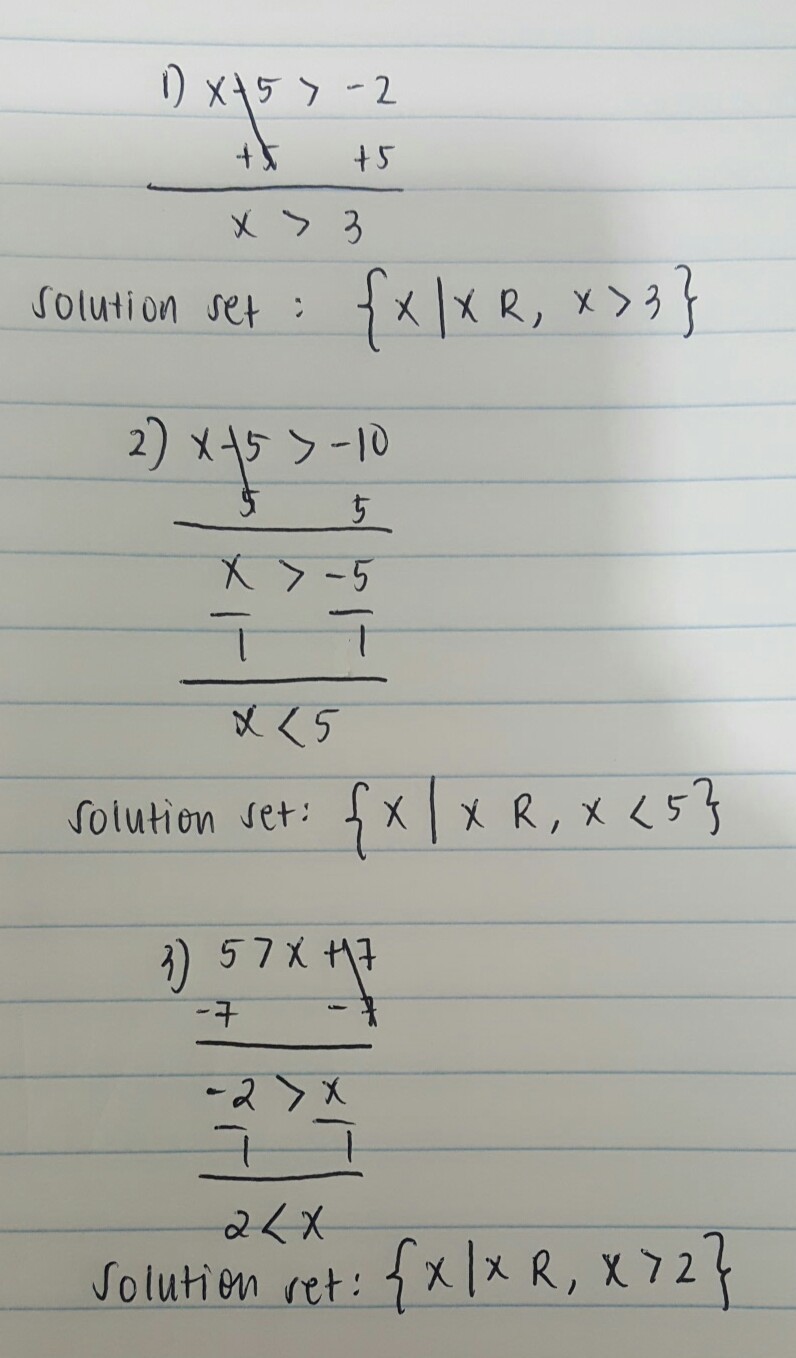 1) x-5 > -2
+5 +5
x > 3
solution set : {x | x R, x > 3}
2) x-5 > -10
5 5
x > -5
1 1
x < 5
solution set: {x | x R, x < 5}
3) 5 > x + 7
-7 -7
-2 > x
1 1
2 < x
solution set: {x | x R, x > 2}